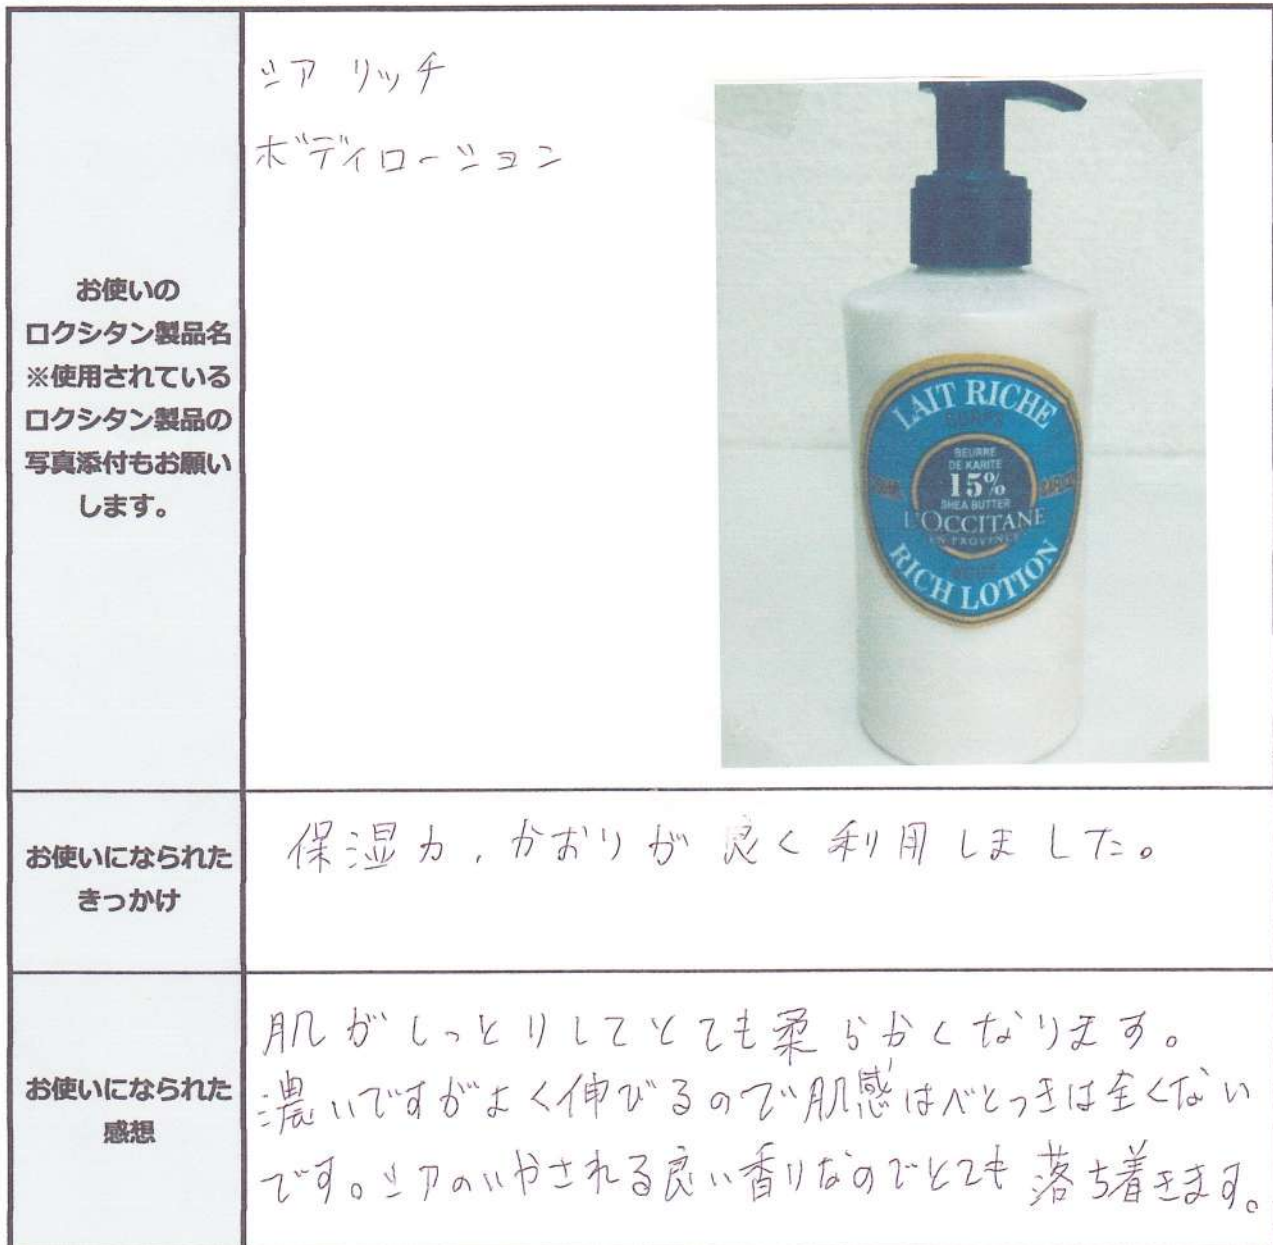 シア リッチ
ボディローション
お使いの
ロクシタン製品名
※使用されている
ロクシタン製品の
写真添付もお願い
します。
LAIT RICHE
CORPS
BEURRE
DE KARITE
15%
SHEA BUTTER
L'OCCITANE
EN PROVENCE
BODY
RICH LOTION
お使いになられた
きっかけ
保湿力、かおりが良く利用しました。
お使いになられた
感想
肌がしっとりしてとても柔らかくなります。
濃いですがよく伸びるので肌感はべとつきは全くない
です。シアのいやされる良い香りなのでとても落ち着きます。